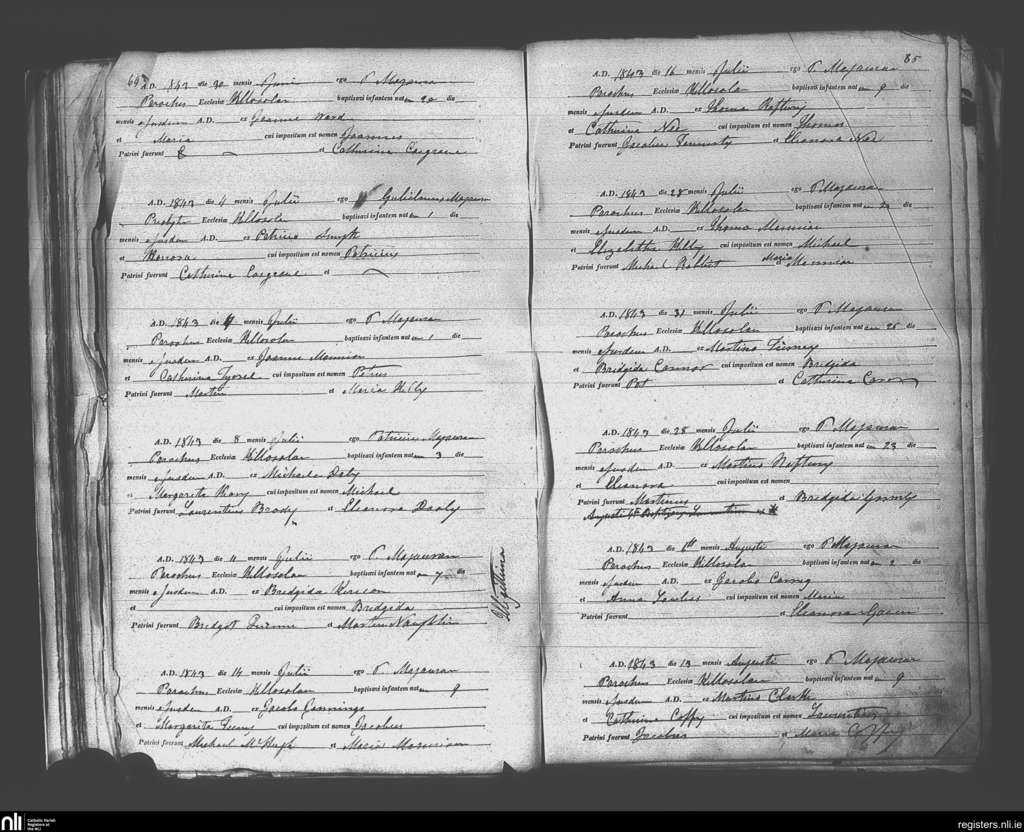 A.D. 1843 die 30 mensis Junii ego P. Magauran
Parochus Ecclesiæ Killosolan baptisavi infantem nat 20 die
mensis ejusdem A.D. ex Joanne Ward
et Maria cui impositum est nomen Joannes
Patrini fuerunt et Catherine Cosgrave
A.D. 1843 die 4 mensis Julii ego Gulielmus Magauran
Ecclesiæ Killosolan baptisavi infantem nat 1 die
mensis ejusdem A.D. ex Patricio Smyth
et Honora cui impositum est nomen Patricius
Patrini fuerunt Catherine Cosgrave et
A.D. 1843 die mensis Julii ego P. Magauran
Parochus Ecclesiæ Killosolan baptisavi infantem nat 1 die
mensis ejusdem A.D. ex Joanne Mannion
et Catherina cui impositum est nomen Petrus
Patrini fuerunt Martin et Maria Kelly
A.D. 1843 die 8 mensis Julii ego Patricius Magauran
Parochus Ecclesiæ Killosolan baptisavi infantem nat 3 die
mensis ejusdem A.D. ex Michaele Daly
et Margarita cui impositum est nomen Michael
Patrini fuerunt Laurentius Brody et Eleanora Daoly
A.D. 1843 die 4 mensis Julii ego P. Magauran
Parochus Ecclesiæ Killosolan baptisavi infantem nat 7 die
mensis ejusdem A.D. ex Bridgida
et cui impositum est nomen Bridgida
Patrini fuerunt Bridget et Martin Naughtin
Illegittima
A.D. 1843 die 14 mensis Julii ego P. Magauran
Parochus Ecclesiæ Killosolan baptisavi infantem nat 9
mensis ejusdem A.D. ex Jacobo Jennings
et Margarita cui impositum est nomen Jacobus
Patrini fuerunt Michael McHugh et Maria
85
A.D. 1843 die 16 mensis Julii ego P. Magauran
Parochus Ecclesiæ Killosolan baptisavi infantem nat 9 die
mensis ejusdem A.D. ex Thoma Raftery
et Catherina Nee cui impositum est nomen Thomas
Patrini fuerunt et Eleanora Nee
A.D. 1843 die 28 mensis Julii ego P. Magauran
Parochus Ecclesiæ Killosolan baptisavi infantem nat die
mensis ejusdem A.D. ex Thoma Mannion
et Elizabitha Kelly cui impositum est nomen Michael
Patrini fuerunt Michael Rabbit et Maria Mannion
A.D. 1843 die 31 mensis Julii ego P. Magauran
Parochus Ecclesiæ Killosolan baptisavi infantem nat 25 die
mensis ejusdem A.D. ex Martino Tierney
et Bridgida Connor cui impositum est nomen Bridgida
Patrini fuerunt Pat et Catherina
A.D. 1843 die 28 mensis Julii ego P. Magauran
Parochus Ecclesiæ Killosolan baptisavi infantem nat 23 die
mensis ejusdem A.D. ex Martino Raftery
et Eleanora cui impositum est nomen
Patrini fuerunt Martinus et Bridgida
A.D. 1843 die 6th mensis Augusti ego P. Magauran
Parochus Ecclesiæ Killosolan baptisavi infantem nat 2 die
mensis ejusdem A.D. ex Jacobo
et Anna Lawless cui impositum est nomen Maria
Patrini fuerunt et Eleanora
A.D. 1843 die 13 mensis Augusti ego P. Magauran
Parochus Ecclesiæ Killosolan baptisavi infantem nat 9
mensis ejusdem A.D. ex Martino Clarke
et Catherina Coffy cui impositum est nomen
Patrini fuerunt Jacobus et Maria Coffy
nli Catholic Parish
Registers at
the NLI
registers.nli.ie